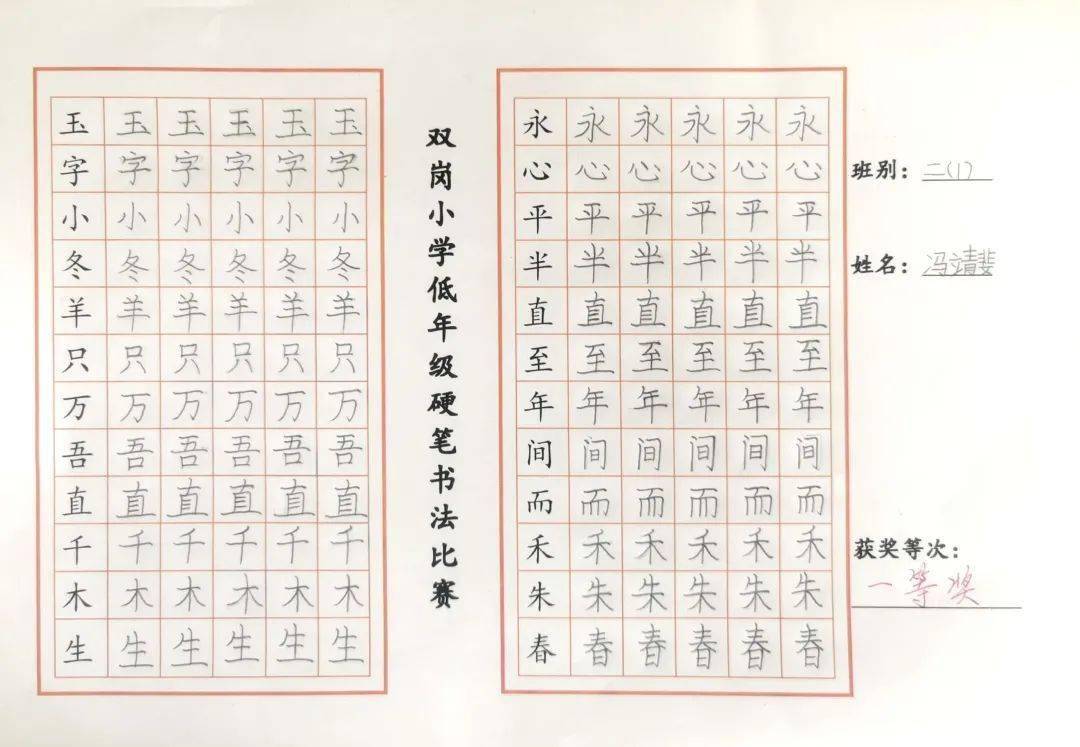 玉玉玉玉玉玉
字字字字字字
小小小小小小
冬冬冬冬冬冬
羊羊羊羊羊羊
只只只只只只
万万万万万万
吾吾吾吾吾吾
直直直直直直
千千千千千千
木木木木木木
生生生生生生
双岗小学低年级硬笔书法比赛
永永永永永永
心心心心心心
平平平平平平
半半半半半半
直直直直直直
至至至至至至
年年年年年年
间间间间间间
而而而而而而
禾禾禾禾禾禾
朱朱朱朱朱朱
春春春春春春
班别：二(1)
姓名：冯靖斐
获奖等次：
一等奖